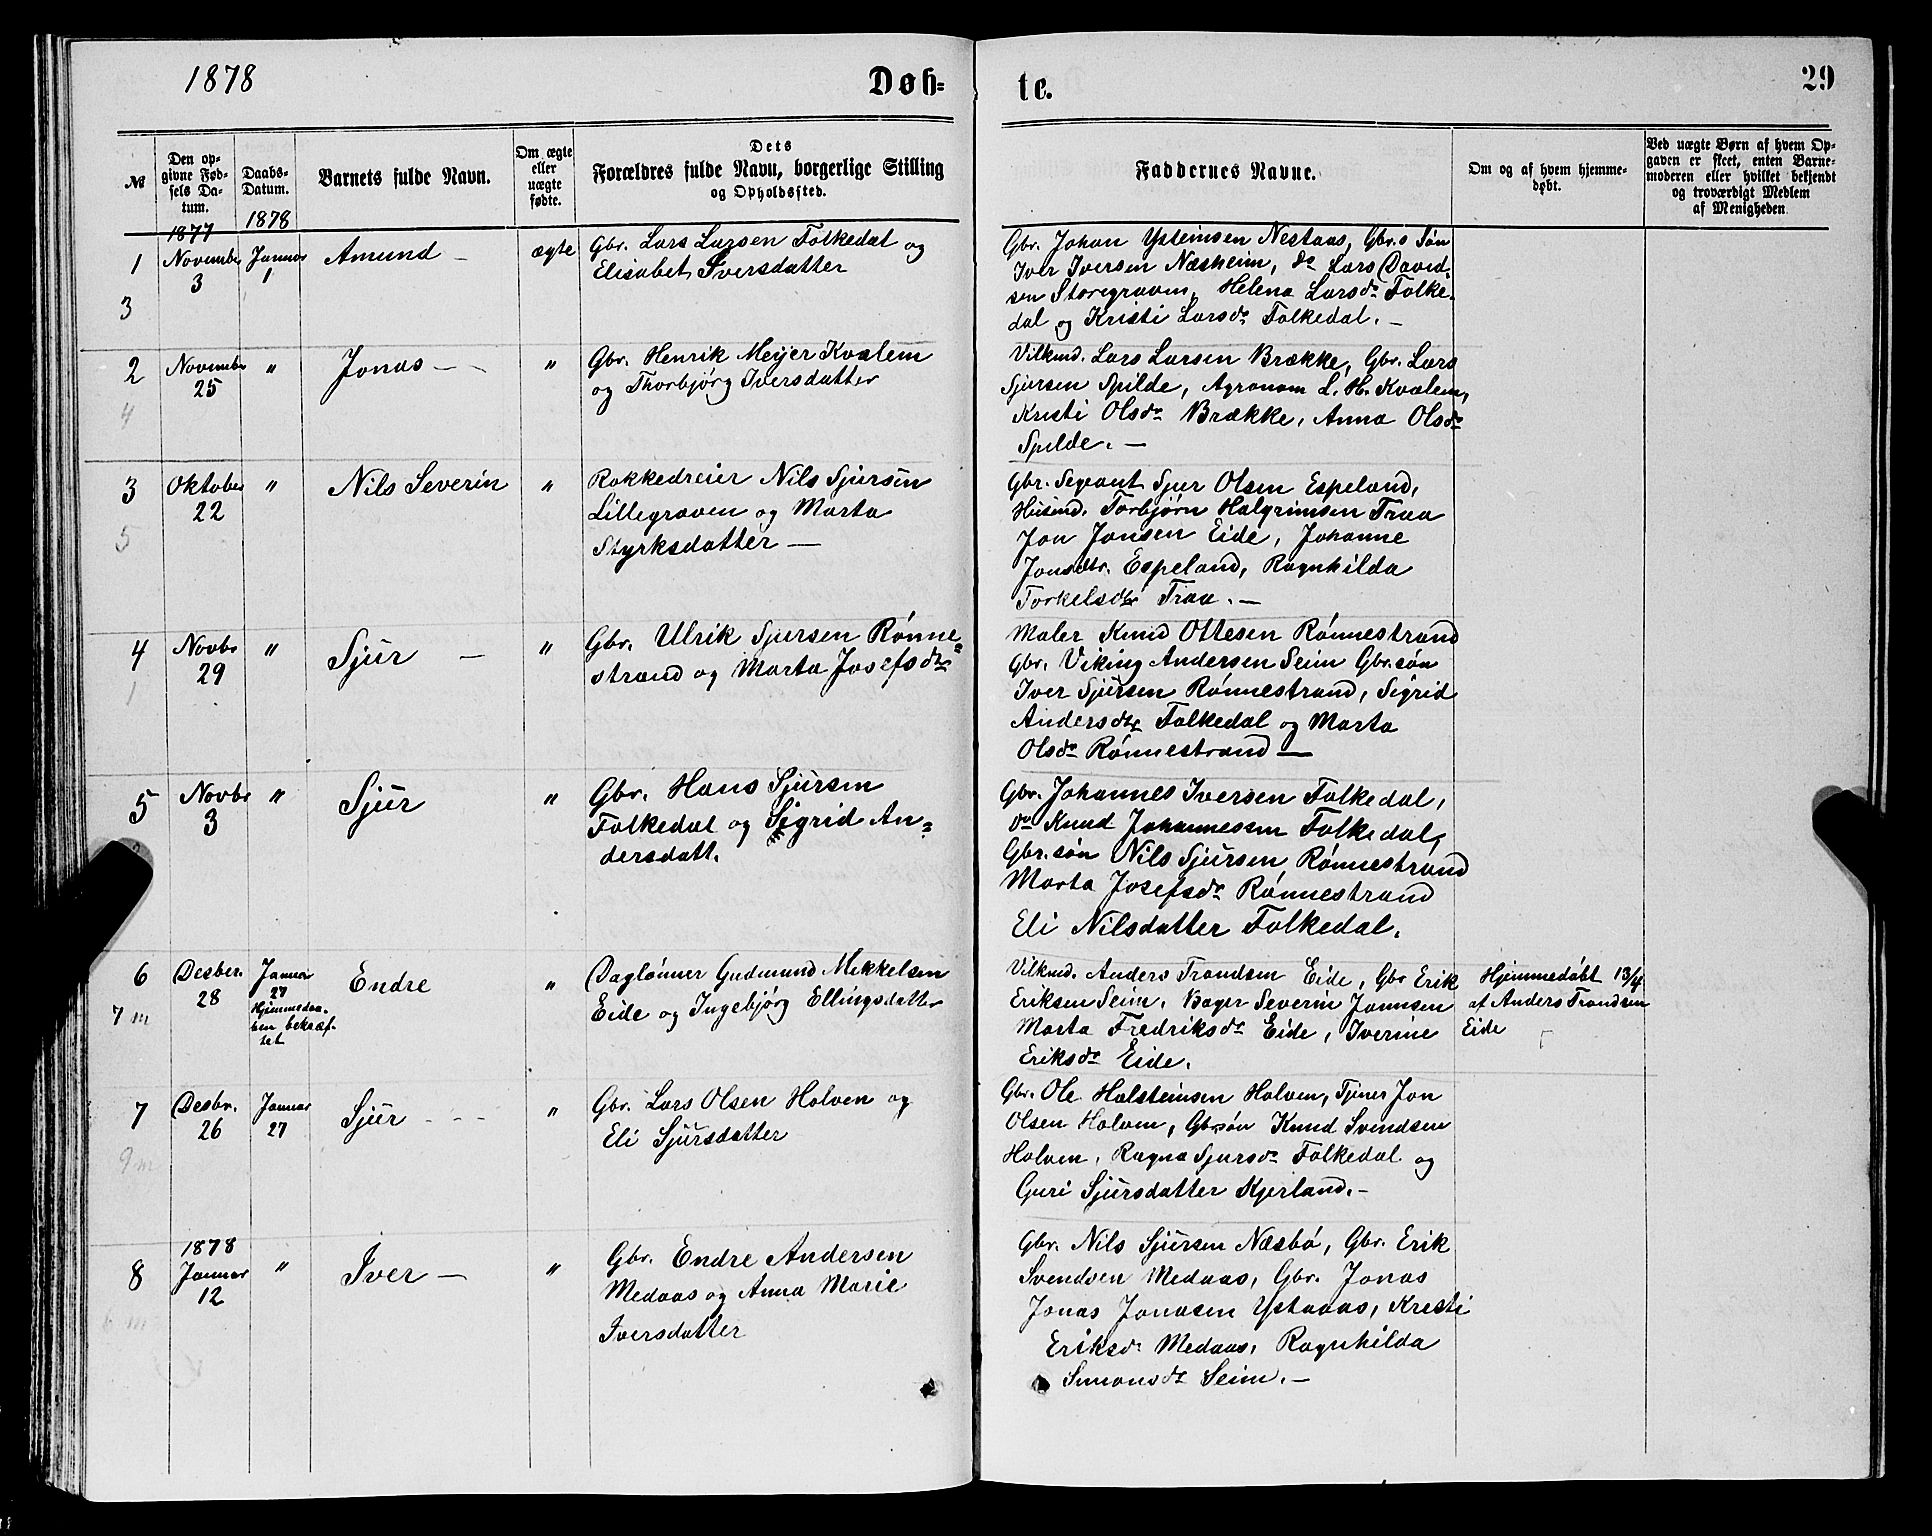 1878
Døb-
te.
29
№
Den op-
givne Fød-
sels Da-
tum.
1877
Daabs-
Datum.
1878
Barnets fulde Navn.
Om ægte
eller
uægte
fødte.
Dets
Forældres fulde Navn, borgerlige Stilling
og Opholdssted.
Faddernes Navne.
Om og af hvem hjemme-
døbt.
Ved uægte Børn af hvem Op-
gaven er skeet, enten Barne-
moderen eller hvilket bekjendt
og troværdigt Medlem
af Menigheden.
1
3
Novembr
3
Januar
1
Amund —
ægte
Gbr. Lars Larsen Folkedal og
Elisabet Iversdatter
Gbr. Johan Ysteinsen Nestaas, Gbr.s Søn
Iver Iversen Næsheim, do Lars David-
sen Storegraven, Helena Larsdr Folke-
dal og Kristi Larsdr Folkedal. —
2
4
Novembr
25
"
Jonas — -
"
Gbr. Henrik Meyer Kvalem
og Thorbjørg Iversdatter
Vilkmd. Lars Larsen Brække, Gbr. Lars
Sjursen Spilde, Agronom L. H. Kvalem,
Kristi Olsdr Brække, Anna Olsdr
Spilde. —
3
5
Oktober
22
"
Nils Severin
"
Rokkedreier Nils Sjursen
Lillegraven og Marta
Styrksdatter —
Gbr. Segeant Sjur Olsen Espeland,
Husmd. Torbjørn Halgrimsen Traa
Jon Jonsen Eide, Johanne
Jonsdtr. Espeland, Ragnhilda
Torkelsdtr Traa. —
4
1
Novbr
29
"
Sjur —
"
Gbr. Ulrik Sjursen Rønne-
strand og Marta Josefsdr
Maler Knud Ottesen Rønnestrand
Gbr. Viking Andersen Seim Gbr.søn
Iver Sjursen Rønnestrand, Sigrid
Andersdtr Folkedal og Marta
Olsdr Rønnestrand —
5
Novbr
3
"
Sjur
"
Gbr. Hans Sjursen
Folkedal og Sigrid An-
dersdatt.
Gbr. Johannes Iversen Folkedal,
do Knud Johannessen Folkedal,
Gbr.søn Nils Sjursen Rønnestrand
Marta Josefsdr Rønnestrand
Eli Nilsdatter Folkedal.
6
7 m
Desber.
28
Januar
27
Hjemmedaa-
ben bekræf-
tet
Endre
"
Daglønner Gudmund Mikkelsen
Eide og Ingebjørg Ellingsdatter
Vilkmd. Anders Trondsen Eide, Gbr Erik
Eriksen Seim, Bager Severin Jonnsen
Marta Fredriksdr Eide, Iverine
Eriksdr Eide.
Hjemmedøbt 13/4
af Anders Trondsen
Eide
7
9 m
Desbr.
26
Januar
27
Sjur - - -
"
Gbr. Lars Olsen Holven og
Eli Sjursdatter
Gbr. Ole Holsteinsen Holven, Tjener Jon
Olsen Holven, Gbrsøn Knud Svendsen
Holven, Ragna Sjursdr Folkedal og
Guri Sjursdatter Kjerland. —
8
6 m
1878
Januar
12
"
Iver —
"
Gbr. Endre Andersen
Medaas og Anna Marie
Iversdatter
Gbr. Nils Sjursen Næsbø, Gbr. Erik
Svendsen Medaas, Gbr. Jonas
Jonas Jonasen Ystaaas, Kristi
Eriksdr Medaas, Ragnhilda
Simonsdr Seim. —